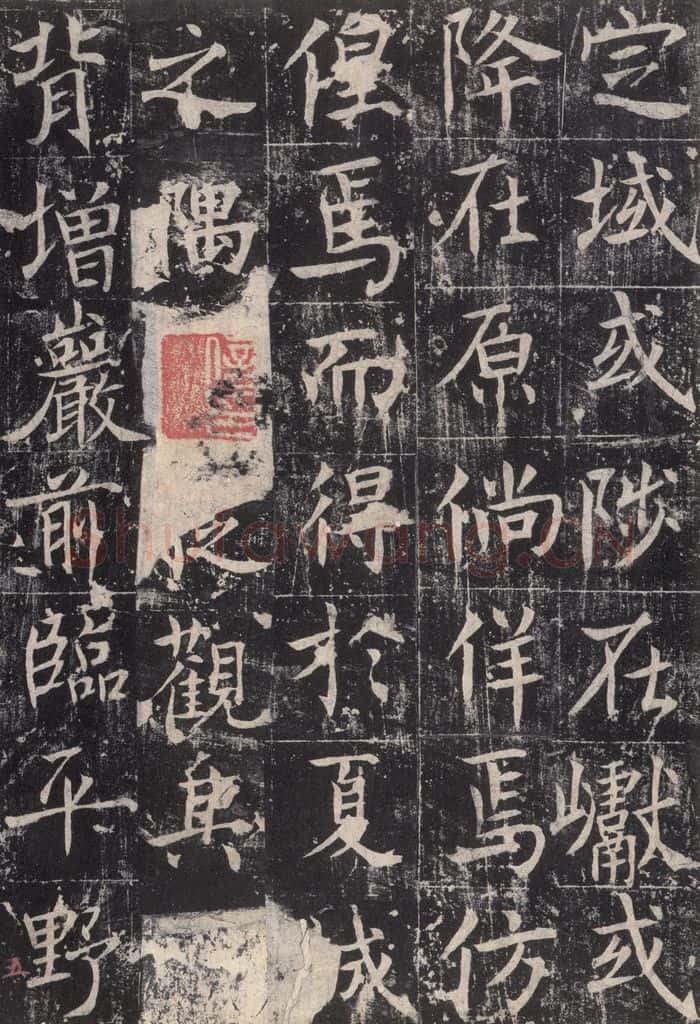 定域或陟在巘或
降在原倘佯焉仿
偟焉而得於夏成
之隅觀其
背增巖前臨平野
五
Shufawang.CN